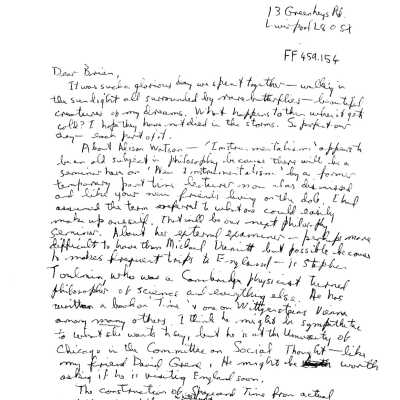 13 Greenheys Rd.
Liverpool L8 0SX
FF 459.154
Dear Brian,
It was such a glorious day we spent together — walking in
the sunlight all surrounded by rare butterflies — beautiful
creatures of my dreams. What happens to them when it gets
cold? I hope they have not died in the storms. So perfect our
day — each part of it.
About Alison Watson — 'Instrumentalism' appears to
be an old subject in philosophy because there will be a
seminar here on 'New Instrumentalism' by a former
temporary part time lecturer now
and like your new friends living on the dole. I had
assumed the term referred to what one could easily
make up oneself. That will be our next philosophy
seminar. About her external examiner — perhaps more
difficult to have than Michael Dummett but possible because
he makes frequent trips to England — is Stephen
Toulmin who was a Cambridge physicist turned
philosopher of science and everything else. He has
written a book on Time & one on Wittgenstein's Vienna
among many others. I think he might be sympathetic
to what she wants to say, but he is at the University of
Chicago in the Committee on Social Thought — like
my friend David Grene. He might be worth
asking if he is visiting England soon.
The construction of Space and Time from actual